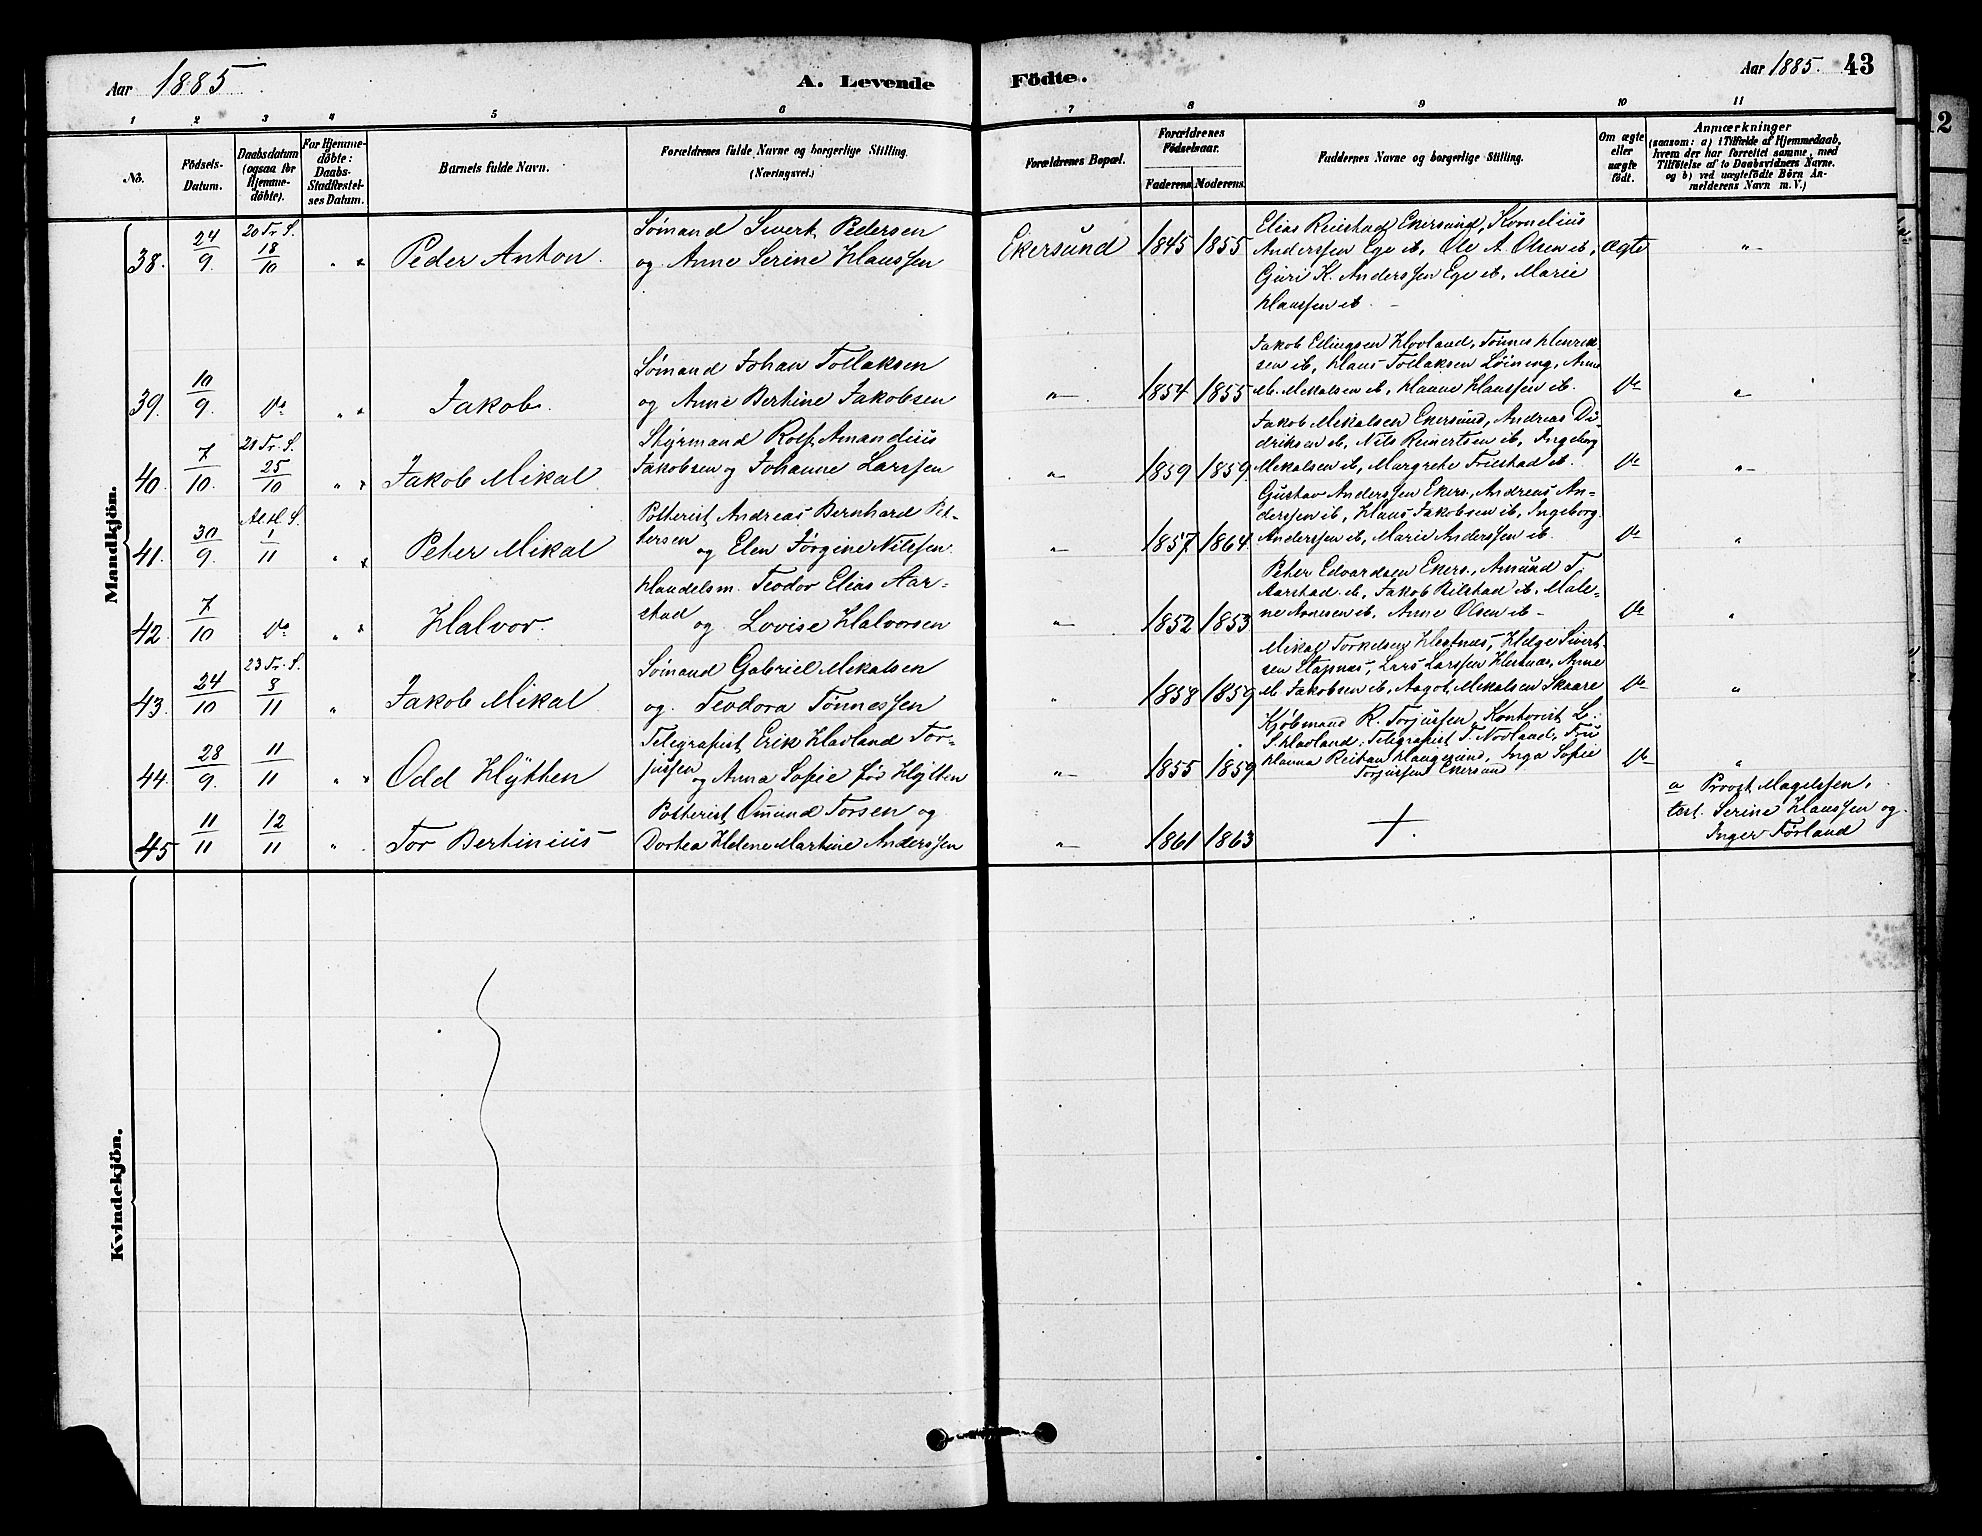 Aar 1885
A. Levende Födte.
Aar 1885. 43
1 2 3 4 5 6 7 8 9 10 11
No. Födsels-Datum. Daabsdatum (ogsaa for Hjemmedöbte). For Hjemmedöbte: Daabs-Stadfæstelses Datum. Barnets fulde Navn. Forældrenes fulde Navne og borgerlige Stilling. (Næringsvei.) Forældrenes Bopæl. Forældrenes Födselsaar. Faderens Moderens. Faddernes Navne og borgerlige Stilling. Om ægte eller uægte födt. Anmærkninger (saasom: a) i Tilfælde af Hjemmedaab, hvem der har forrettet samme, med Tilföielse af to Daabsvidners Navne. og b) ved uægtefödte Börn Anmelderens Navn m.V.)
Mandkjön.
38. 24/9. 20 Tr. S. 18/10 " " Peder Anton. Sømand Sivert Pedersen
og Anne Serine Klaussen
Ekersund 1845 1855 Elias Reiestad Ekersund, Kornelius
Anderssen Ege ib, Ole A. Olsen ib,
Guri K. Anderssen Ege ib, Marie
Klaussen ib. ægte "
39. 10/9. Do " " Jakob. Sømand Johan Tollaksen
og Anne Bertine Jakobsen
" 1854 1855 Jakob Ellingsen Hovland, Tønnes Henrik
sen ib, Klaus Tollaksen Løining, Anne
M. Mikalsen ib, Hanne Klaussen ib. Do "
40. 7/10. 21 Tr. S. 25/10 " " Jakob Mikal Styrmand Rolf Amandius
Jakobsen og Johanne Larssen
" 1859 1859. Jakob Mikalsen Ekersund, Andreas Di-
driksen ib, Nils Reinertsen ib, Ingeborg
Mikalsen ib, Margrete Friestad ib. Do "
41. 30/9. All H. S. 1/11 " " Peter Mikal Potterist Andreas Bernhard Pet-
tersen og Elen Jørgine Nilssen.
" 1857 1864 Gustav Anderssen Ekers., Andreas An-
derssen ib, Klaus Jakobsen ib, Ingeborg
Anderssen ib, Marie Anderssen ib. Do "
42. 7/10 Do " " Halvor. Handelsm. Teodor Elias Aar-
stad og Lovise Halvorsen
" 1852 1853 Peter Edvardsen Ekers., Amund T.
Aarstad ib, Jakob Bilstad ib, Male-
ne ib, Anne Olsen ib - Do "
43. 24/10 23 Tr. S. 8/11 " Jakob Mikal Sømand Gabriel Mikalsen
og. Teodora Tønnessen
" 1858 1859 Mikal Torkelsen Hestnes, Helge Sivert
sen Stapnæs, Lars Larssen Hestnæs, Anne
M Jakobsen ib, Aagot Mikalsen Skaare Do "
44. 28/9. 11/11 " " Odd Hytten Telegrafist Erik Havland Tor-
jussen og Anna Sofie føs Hytten
" 1855 1859 Kjøbmand R. Torjussen, Kontorist L.
S. Havland, Telegrafist T. Novland, Fru
Hanna Reitan Haugesund, Inga Sofie
Torjussen Ekersund Do "
45 11/11 12/11 " Tor Bertinius Potterist Omund Torsen og
Dortea Helene Martine Anderssen
" 1861 1863 +. a Provst Magelssen,
test. Serine Klaussen og
Inger Førland
Kvindekjön.
12